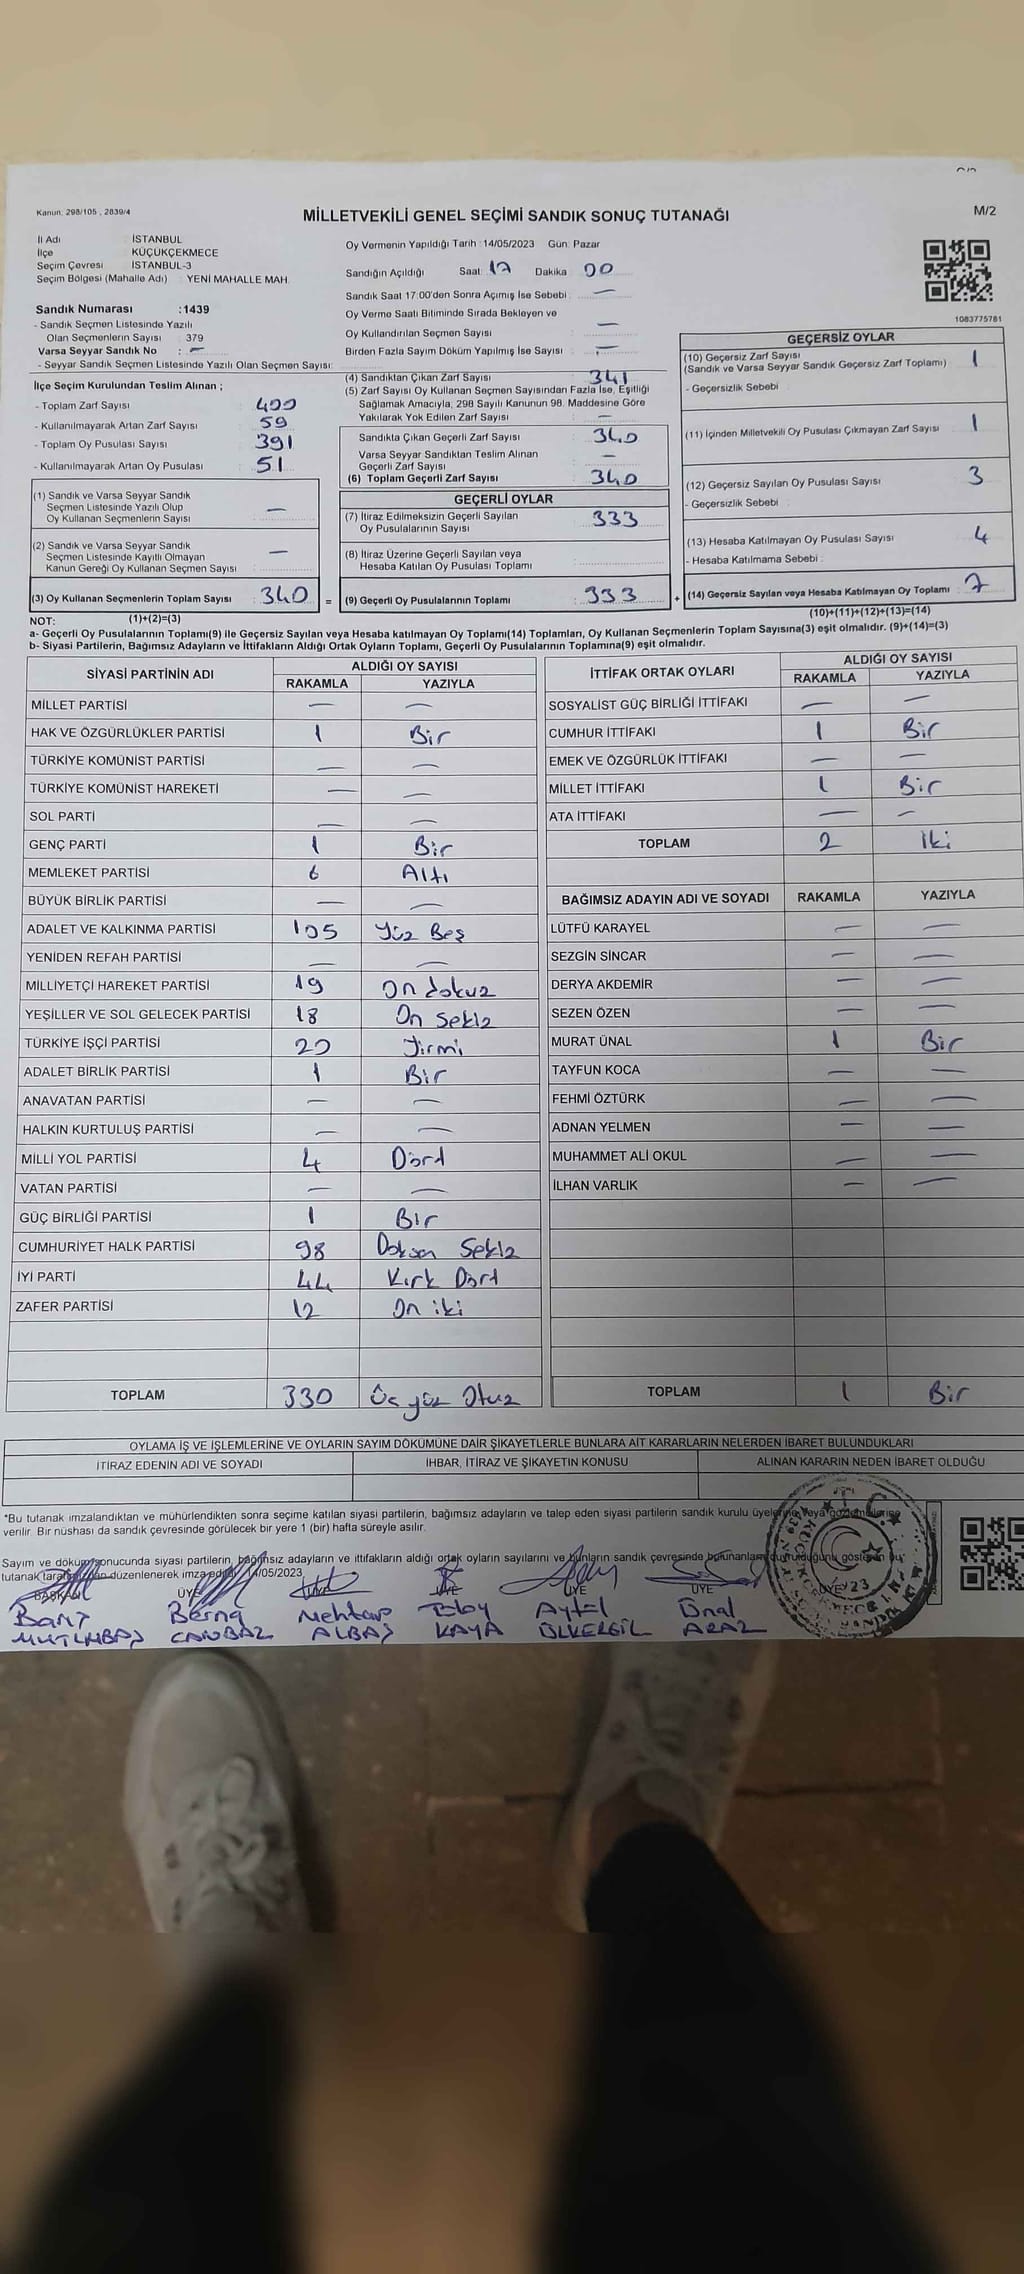 Kanun: 298/105 , 2839/4
MİLLETVEKİLİ GENEL SEÇİMİ SANDIK SONUÇ TUTANAĞI
M/2
İl Adı : İSTANBUL
İlçe : KÜÇÜKÇEKMECE
Seçim Çevresi : İSTANBUL-3
Seçim Bölgesi (Mahalle Adı) : YENİ MAHALLE MAH.
Sandık Numarası :1439
- Sandık Seçmen Listesinde Yazılı
Olan Seçmenlerin Sayısı : 379
Varsa Seyyar Sandık No : —
- Seyyar Sandık Seçmen Listesinde Yazılı Olan Seçmen Sayısı:
Oy Vermenin Yapıldığı Tarih : 14/05/2023 Gün: Pazar
Sandığın Açıldığı Saat: 17 Dakika 00
Sandık Saat 17:00'den Sonra Açımış İse Sebebi : —
Oy Verme Saati Bitiminde Sırada Bekleyen ve
Oy Kullandırılan Seçmen Sayısı : —
Birden Fazla Sayım Döküm Yapılmış İse Sayısı : —
1083775781
İlçe Seçim Kurulundan Teslim Alınan ;
- Toplam Zarf Sayısı : 400
- Kullanılmayarak Artan Zarf Sayısı : 59
- Toplam Oy Pusulası Sayısı : 391
- Kullanılmayarak Artan Oy Pusulası : 51
(1) Sandık ve Varsa Seyyar Sandık
Seçmen Listesinde Yazılı Olup
Oy Kullanan Seçmenlerin Sayısı : —
(2) Sandık ve Varsa Seyyar Sandık
Seçmen Listesinde Kayıtlı Olmayan
Kanun Gereği Oy Kullanan Seçmen Sayısı : —
(3) Oy Kullanan Seçmenlerin Toplam Sayısı : 340 =
(4) Sandıktan Çıkan Zarf Sayısı : 341
(5) Zarf Sayısı Oy Kullanan Seçmen Sayısından Fazla İse, Eşitliği
Sağlamak Amacıyla, 298 Sayılı Kanunun 98. Maddesine Göre
Yakılarak Yok Edilen Zarf Sayısı : —
Sandıkta Çıkan Geçerli Zarf Sayısı : 340
Varsa Seyyar Sandıktan Teslim Alınan
Geçerli Zarf Sayısı : —
(6) Toplam Geçerli Zarf Sayısı : 340
GEÇERLİ OYLAR
(7) İtiraz Edilmeksizin Geçerli Sayılan
Oy Pusulalarının Sayısı : 333
(8) İtiraz Üzerine Geçerli Sayılan veya
Hesaba Katılan Oy Pusulası Toplamı :
(9) Geçerli Oy Pusulalarının Toplamı : 333 +
GEÇERSİZ OYLAR
(10) Geçersiz Zarf Sayısı
(Sandık ve Varsa Seyyar Sandık Geçersiz Zarf Toplamı) : 1
- Geçersizlik Sebebi :
(11) İçinden Milletvekili Oy Pusulası Çıkmayan Zarf Sayısı : 1
(12) Geçersiz Sayılan Oy Pusulası Sayısı : 3
- Geçersizlik Sebebi :
(13) Hesaba Katılmayan Oy Pusulası Sayısı : 4
- Hesaba Katılmama Sebebi :
(14) Geçersiz Sayılan veya Hesaba Katılmayan Oy Toplamı : 7
NOT: (1)+(2)=(3)
(10)+(11)+(12)+(13)=(14)
a- Geçerli Oy Pusulalarının Toplamı(9) ile Geçersiz Sayılan veya Hesaba katılmayan Oy Toplamı(14) Toplamları, Oy Kullanan Seçmenlerin Toplam Sayısına(3) eşit olmalıdır. (9)+(14)=(3)
b- Siyasi Partilerin, Bağımsız Adayların ve İttifakların Aldığı Ortak Oyların Toplamı, Geçerli Oy Pusulalarının Toplamına(9) eşit olmalıdır.
SİYASİ PARTİNİN ADI ALDIĞI OY SAYISI
RAKAMLA YAZIYLA
MİLLET PARTİSİ — —
HAK VE ÖZGÜRLÜKLER PARTİSİ 1 Bir
TÜRKİYE KOMÜNİST PARTİSİ — —
TÜRKİYE KOMÜNİST HAREKETİ — —
SOL PARTİ — —
GENÇ PARTİ 1 Bir
MEMLEKET PARTİSİ 6 Altı
BÜYÜK BİRLİK PARTİSİ — —
ADALET VE KALKINMA PARTİSİ 105 Yüz Beş
YENİDEN REFAH PARTİSİ — —
MİLLİYETÇİ HAREKET PARTİSİ 19 On dokuz
YEŞİLLER VE SOL GELECEK PARTİSİ 18 On Sekiz
TÜRKİYE İŞÇİ PARTİSİ 20 Yirmi
ADALET BİRLİK PARTİSİ 1 Bir
ANAVATAN PARTİSİ — —
HALKIN KURTULUŞ PARTİSİ — —
MİLLİ YOL PARTİSİ 4 Dört
VATAN PARTİSİ — —
GÜÇ BİRLİĞİ PARTİSİ 1 Bir
CUMHURİYET HALK PARTİSİ 98 Doksan Sekiz
İYİ PARTİ 44 Kırk Dört
ZAFER PARTİSİ 12 On iki
TOPLAM 330 Üç yüz Otuz
İTTİFAK ORTAK OYLARI ALDIĞI OY SAYISI
RAKAMLA YAZIYLA
SOSYALİST GÜÇ BİRLİĞİ İTTİFAKI — —
CUMHUR İTTİFAKI 1 Bir
EMEK VE ÖZGÜRLÜK İTTİFAKI — —
MİLLET İTTİFAKI 1 Bir
ATA İTTİFAKI — —
TOPLAM 2 İki
BAĞIMSIZ ADAYIN ADI VE SOYADI RAKAMLA YAZIYLA
LÜTFÜ KARAYEL — —
SEZGİN SİNCAR — —
DERYA AKDEMİR — —
SEZEN ÖZEN — —
MURAT ÜNAL 1 Bir
TAYFUN KOCA — —
FEHMİ ÖZTÜRK — —
ADNAN YELMEN — —
MUHAMMET ALİ OKUL — —
İLHAN VARLIK — —
TOPLAM 1 Bir
OYLAMA İŞ VE İŞLEMLERİNE VE OYLARIN SAYIM DÖKÜMÜNE DAİR ŞİKAYETLERLE BUNLARA AİT KARARLARIN NELERDEN İBARET BULUNDUKLARI
İTİRAZ EDENİN ADI VE SOYADI İHBAR, İTİRAZ VE ŞİKAYETİN KONUSU ALINAN KARARIN NEDEN İBARET OLDUĞU
*Bu tutanak imzalandıktan ve mühürlendikten sonra seçime katılan siyasi partilerin, bağımsız adayların ve talep eden siyasi partilerin sandık kurulu üyelerine veya gözlemcilerine
verilir. Bir nüshası da sandık çevresinde görülecek bir yere 1 (bir) hafta süreyle asılır.
Sayım ve döküm sonucunda siyasi partilerin, bağımsız adayların ve ittifakların aldığı ortak oyların sayılarını ve bunların sandık çevresinde bulunanlara duyurulduğunu gösteren bu
tutanak tarafımızdan düzenlenerek imza edildi. 14/05/2023
BAŞKAN ÜYE ÜYE ÜYE ÜYE ÜYE ÜYE
Berna Mehtap Aytel Ünal
CANBAZ ALBAŞ KAYA ÜLKERGİL ARAZ
T.C.